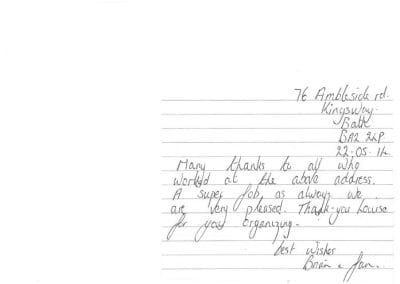 76 Ambleside rd.
Kingsway
Bath
BA2 2LP
22.05.12
Many thanks to all who
worked at the above address.
A super job as always we
are very pleased. Thank-you Louise
for your organizing.
best wishes
Brian & Jan.